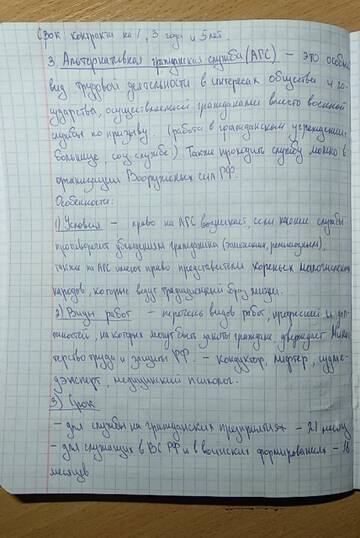 Срок контракта на 1, 3 года и 5 лет.
3. Альтернативная гражданская служба (АГС) – это особый
вид трудовой деятельности в интересах общества и го-
сударства, осуществляемой гражданами вместо военной
службы по призыву. (работа в гражданском учреждении,
больнице, соц службе) Также проходить службу можно в
организации Вооруженных сил РФ.
Особенности:
1) Условия – право на АГС возникает, если несение службы
противоречит убеждениям гражданина (
также на АГС имеют право представители коренных малочисленных
народов, которые ведут традиционный образ жизни.
2) Виды работ – перечень видов работ, профессий и дол-
жностей, на которых могут быть заняты граждане, утверждает Минис-
терство труда и защиты РФ. – кондуктор, лифтер, судмед-
эксперт, медицинский психолог.
3) Срок
– для службы на гражданских предприятиях – 21 месяц
– для служащих в ВС РФ и в воинских формированиях – 18
месяцев